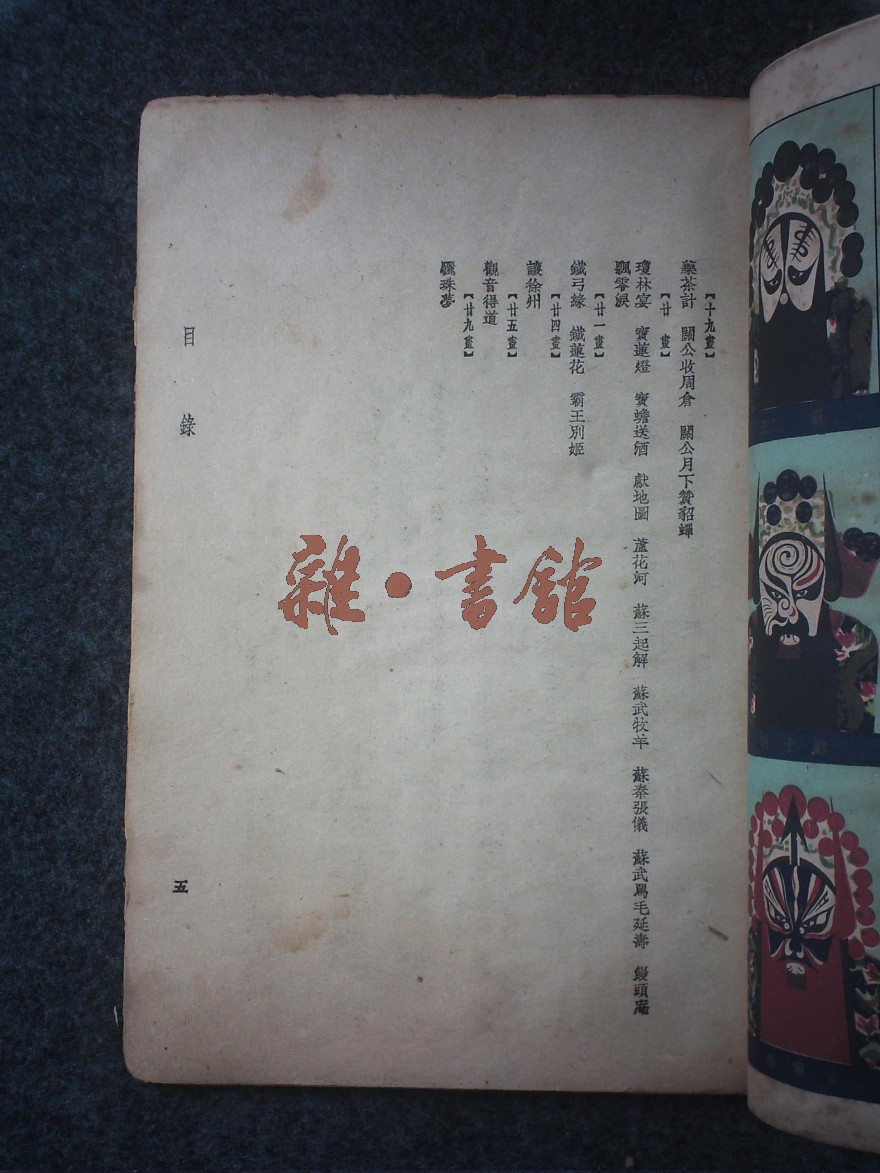 【十九畫】
藥茶計 關公收周倉 關公月下贊貂蟬
【廿 畫】
瓊林宴 寶蓮燈 寶蟾送酒 獻地圖 蘆花河 蘇三起解 蘇武牧羊 蘇秦張儀 蘇武罵毛延壽 饅頭庵
飄零淚
【廿一畫】
鐵弓緣 鐵蓮花 霸王別姬
【廿四畫】
讓徐州
【廿五畫】
觀音得道
【廿九畫】
驪珠夢
目錄
五
雜·書館